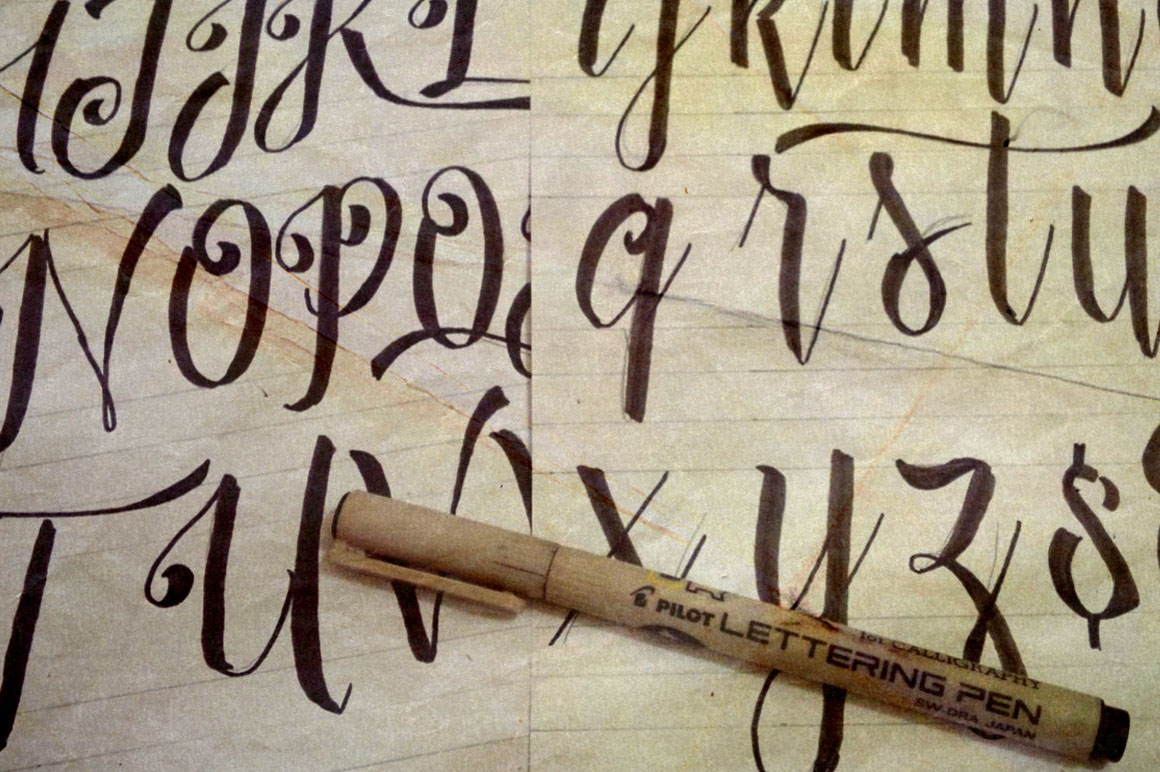 I J K L
N O P Q
T U V
i j k l m n
q r s t u
x y z $
PILOT LETTERING PEN
for CALLIGRAPHY
SW-DRA JAPAN